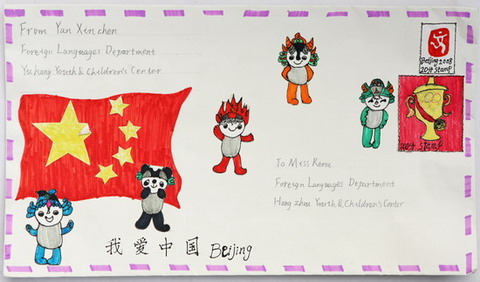 From Yan Xin chen
Foreign Languages Department
Yichang Youth & Children's Center
Beijing 2008
2014 STAMP
2014 STAMP
To Miss Rene
Foreign Languages Department
Hang zhou Youth & Children's Center
我愛中国 Beijing